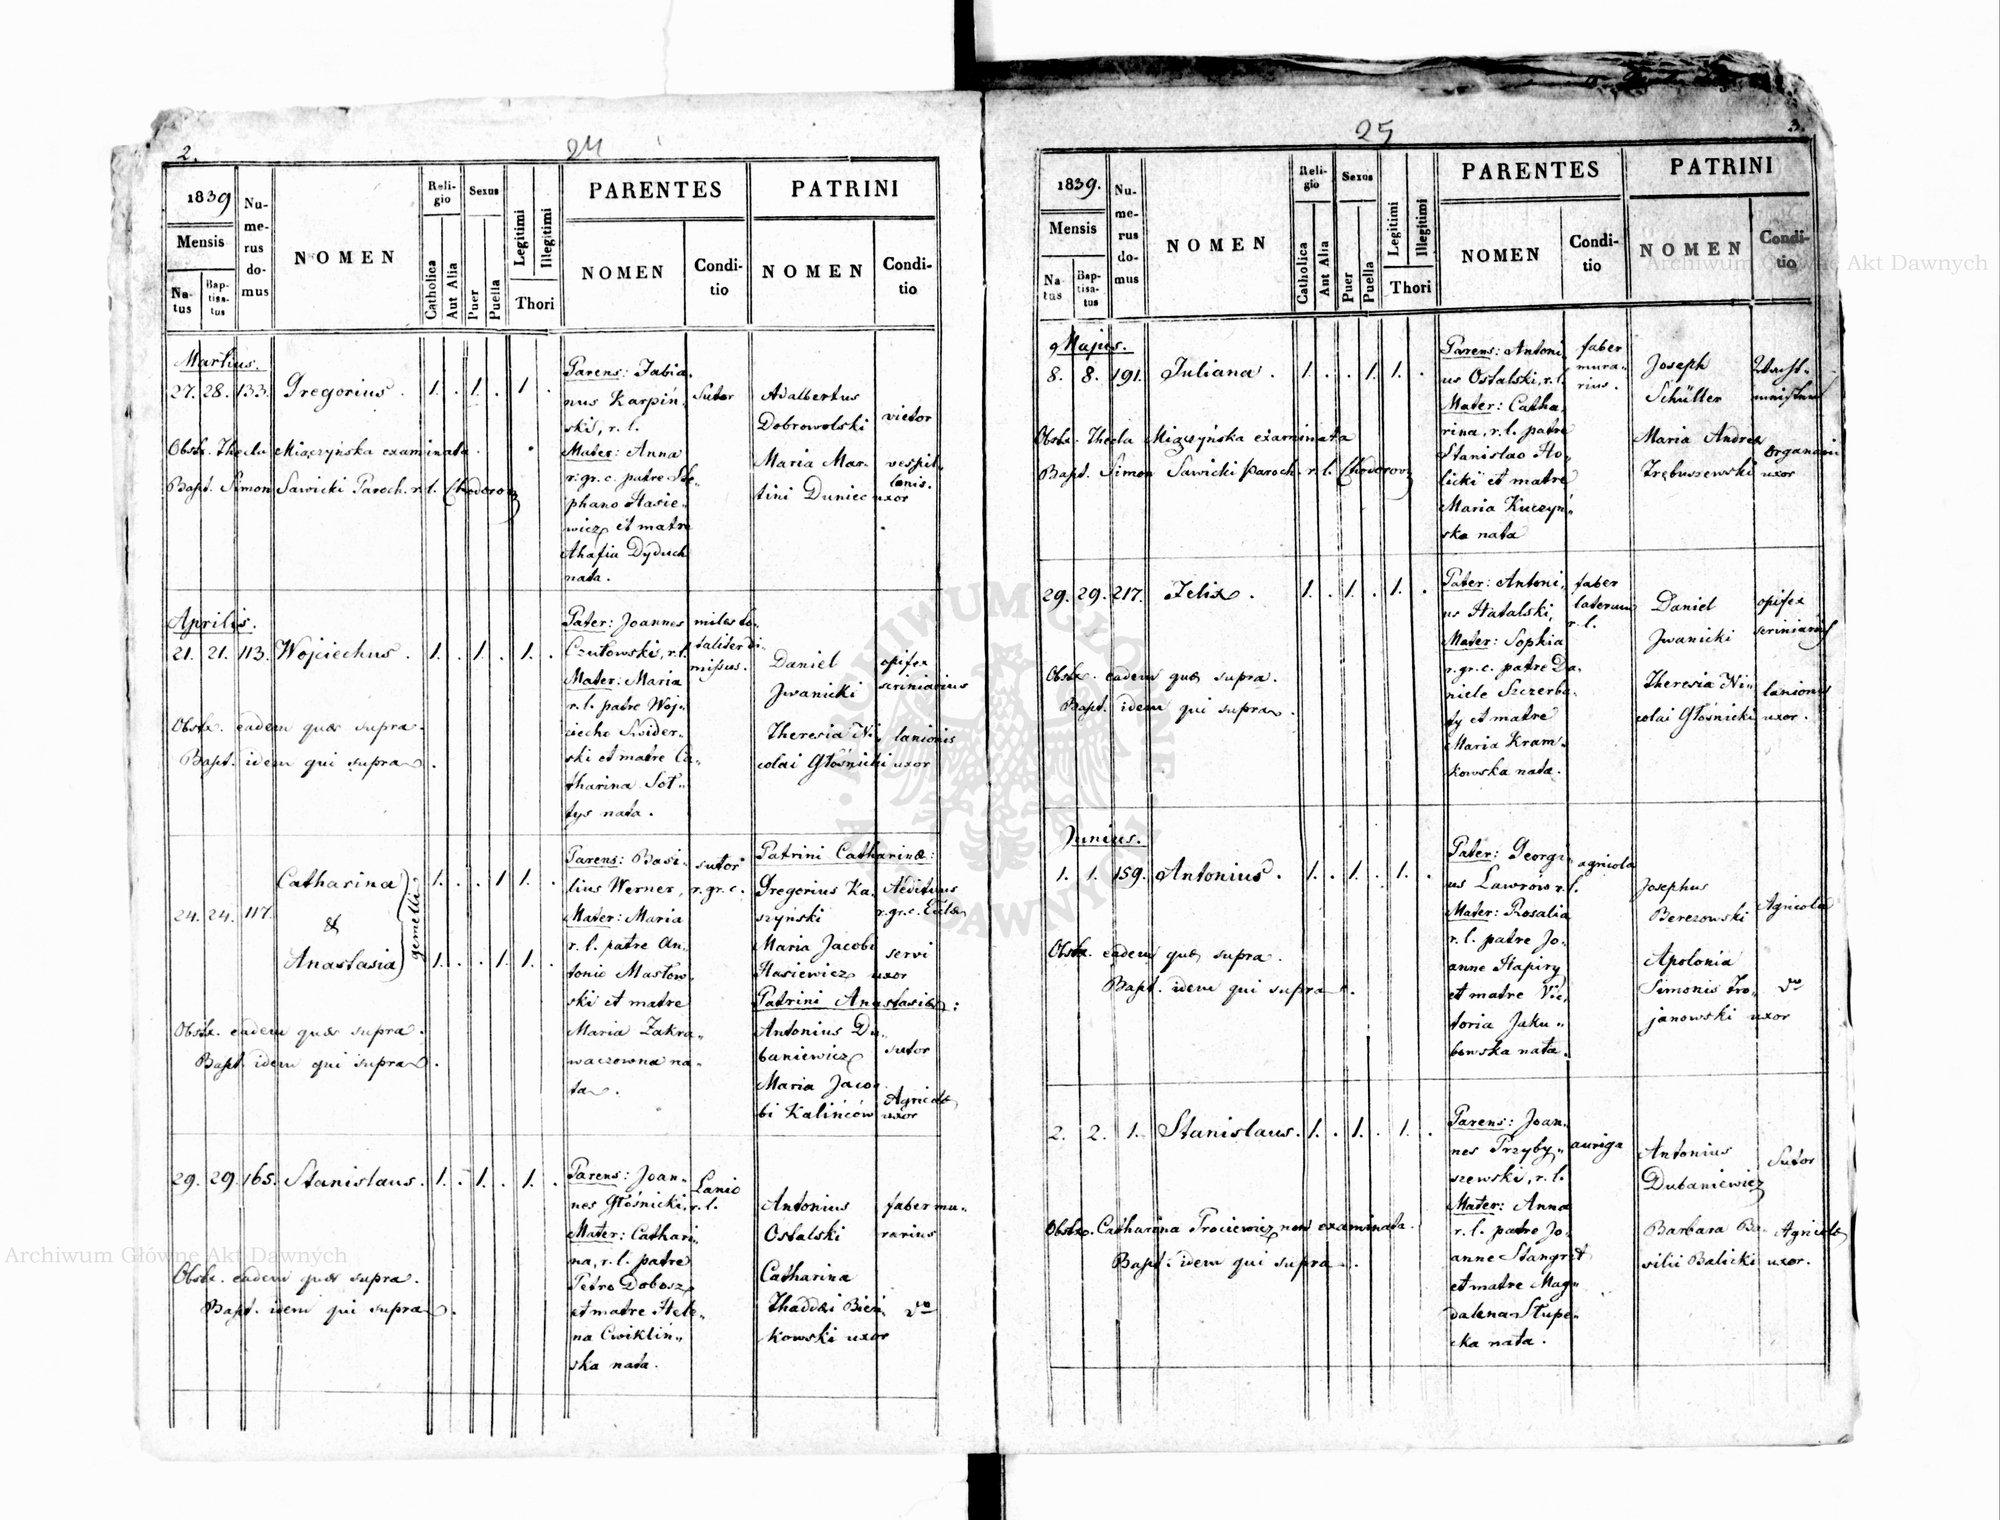 2.
24
1839
Numerus domus
NOMEN
Religio
Sexus
Legitimi
Illegitimi
PARENTES
PATRINI
Mensis
Natus
Baptisatus
Catholica
Aut Alia
Puer
Puella
Thori
NOMEN
Conditio
NOMEN
Conditio
Martius.
27. 28. 133. Gregorius. 1. . 1. . 1. .
Obstx. Thecla Miączyńska examinata.
Bapt. Simon Sawicki Paroch. r. l. Chodorov
Parens: Fabia,
nus Karpiń,
ski, r. l.
Mater: Anna
r. gr. c. patre Ste,
phano Hasie,
wicz et matre
Ahafia Dyduch
nata.
Sutor
Adalbertus
Dobrowolski
Maria Mar,
tini Duniec
vietor
vespil,
lonis.
uxor
Aprilis.
21. 21. 113. Wojciechus. 1. . 1. . 1. .
Obstx. eadem quæ supra.
Bapt. idem qui supra.
Pater: Joannes
Czutowski, r. l.
Mater: Maria
r. l. patre Woj,
ciecho Swider,
ski et matre Ca,
tharina Soł,,
tys nata.
miles to,
taliter di,
missus.
Daniel
Jwanicki
Theresia Ni,
colai Głośnicki
opifex
scriniarius
lanionis
uxor
24. 24. 117.
Catharina
&
Anastasia
gemellæ
1. . . 1 1. .
1. . . 1. 1. .
Obstx. eadem quæ supra.
Bapt. idem qui supra.
Parens: Basi,
lius Werner,
Mater: Maria
r. l. patre An,
tonio Masłow,
ski et matre
Maria Zakra,,
waczowna na,
ta.
sutor
r. gr. c.
Patrini Catharinæ:
Gregorius Ka,
szyński
Maria Jacobi
Hasiewicz
Patrini Anastasiæ:
Antonius Du,
baniewicz
Maria Jaco,
bi Kalińców
Aedituus
r. gr. c. Eccl
servi
uxor
sutor
Agricolæ
uxor
29. 29. 165. Stanislaus. 1. . 1. . 1. .
Obstx. eadem quæ supra.
Bapt. idem qui supra.
Parens: Joan,
nes Głośnicki,
Mater: Cathari,
na, r. l. patre
Petro Dobosz
et matre Hele,
na Cwikliń,,
ska nata.
Lanio
r. l.
Antonius
Ostalski
Catharina
Thaddæi Bień,
kowski uxor
faber mu,
rarius
dto
3.
25
1839.
Numerus domus
NOMEN
Religio
Sexus
Legitimi
Illegitimi
PARENTES
PATRINI
Mensis
Natus
Baptisatus
Catholica
Aut Alia
Puer
Puella
Thori
NOMEN
Conditio
NOMEN
Conditio
Majus.
8. 8. 191. Juliana. 1. . . 1. 1. .
Obstx. Thecla Miączyńska examinata
Bapt. Simon Sawicki Paroch. r. l. Chodorov
Parens: Antoni,
us Ostalski, r. l.
Mater: Catha,
rina, r. l. patre
Stanislao Ho,
licki et matre
Maria Kuczyń,,
ska nata
faber
mura,
rius.
Joseph
Schüller
Maria Andreæ
Trębuszewski
organarii
uxor
29. 29. 217. Felix. 1. . 1. . 1. .
Obstx. eadem quæ supra.
Bapt. idem qui supra.
Pater: Antoni,
us Hatalski,
Mater: Sophia
r. gr. c. patre Da,
niele Szczerba,
ty et matre
Maria Kram,
kowska nata.
faber
laterum
r. l.
Daniel
Jwanicki
Theresia Ni,,
colai Głośnicki
opifex
scriniarius
lanionis
uxor.
Junius.
1. 1. 159. Antonius. 1. . 1. . 1. .
Obstx. eadem quæ supra.
Bapt. idem qui supra.
Pater: Georgi,
us Lawrow r. l.
Mater: Rosalia
r. l. patre Jo,
anne Hapiry
et matre Vic,
toria Jaku,,
bowska nata.
agricola
Josephus
Berezowski
Apolonia
Simonis Tro,
janowski
Agricola
dto
uxor
2. 2. 1. Stanislaus. 1. . 1. . 1. .
Obstx. Catharina Trociewicz non examinata.
Bapt. idem qui supra.
Parens: Joan,
nes Przyby,,
szewski, r. l.
Mater: Anna
r. l. patre Jo,
anne Stangret
et matre Mag,,
dalena Stupe,,
cka nata.
auriga
Antonius
Dubaniewicz
Barbara Ba,
silii Balicki
Sutor
Agricolæ
uxor.
Archiwum Główne Akt Dawnych
Archiwum Główne Akt Dawnych
ARCHIWUM GŁÓWNE AKT DAWNYCH